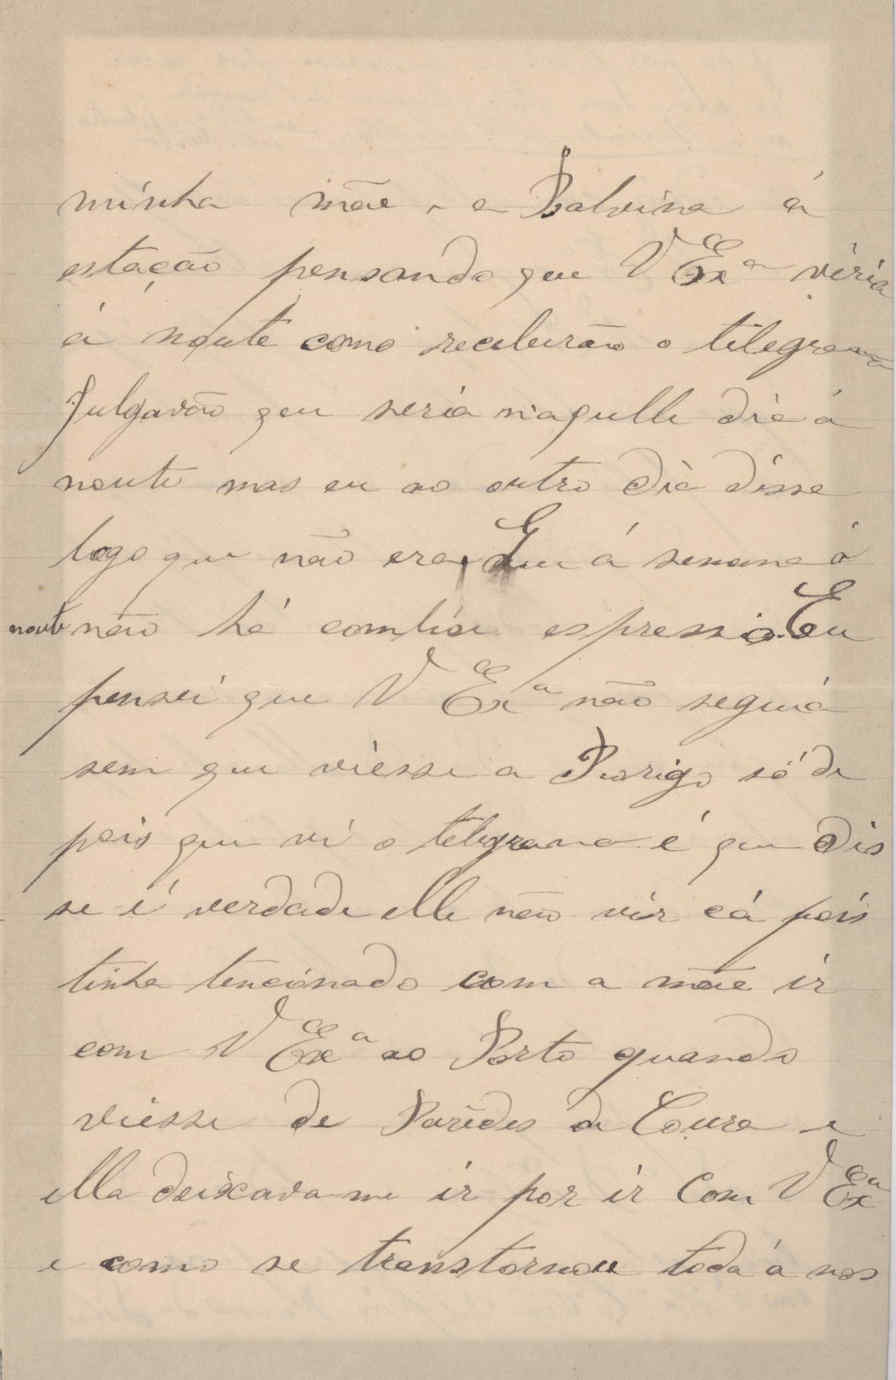 minha mãe, e a Balvina á
estação pensando que V Exª viria
á noute como receberão o telegrama
Julgavão que seria n'aquelle dia á
noute mas eu ao outro dia disse
logo que não era, Que á semana á
noute não há comboi espresso. Eu
pensei que V Exª não seguiá
sem que viesse a Perrigo só de
pois que vi o telegrama é que dis
se é verdade elle não vir cá pois
tinha tencionado com a mãe ir
com V Exª ao Porto quando
viesse de Parêdes de Coura e
ella deixava-me ir por ir Com V Exª
e como se transtornou toda á nos